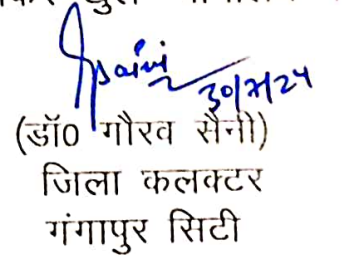 30/7/24
(डॉ0 गौरव सैनी)
जिला कलक्टर
गंगापुर सिटी